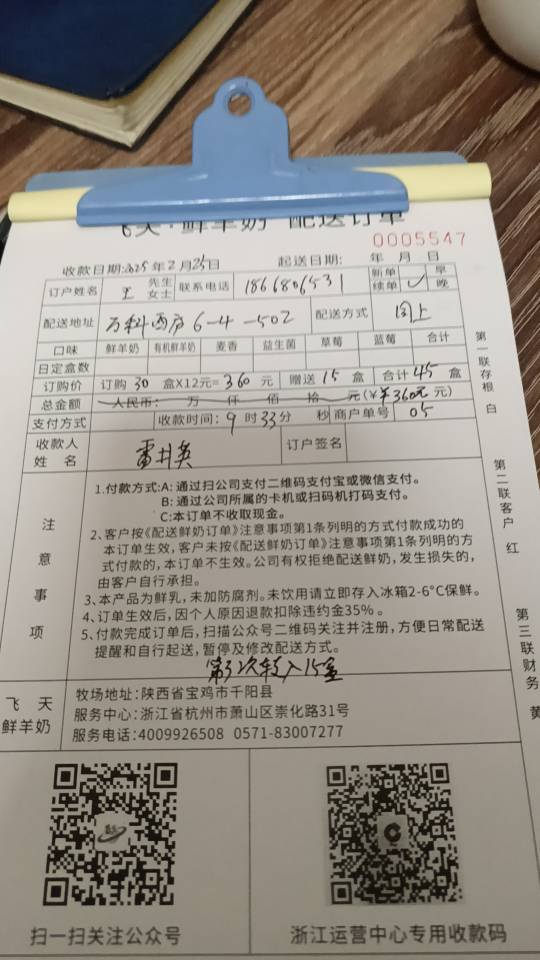 飞天·鲜羊奶 配送订单
0005547
收款日期:2025年2月25日 起送日期: 年 月 日
订户姓名 王 先生 女士 联系电话 1866806531 新单 续单 ✓ 早 晚
配送地址 万科西庐 6-4-502 配送方式 同上
口味 鲜羊奶 有机鲜羊奶 麦香 益生菌 草莓 蓝莓 合计
日定盒数
订购价 订购 30 盒X12元= 360 元 赠送 15 盒 合计 45 盒
总金额 人民币: 万 仟 佰 拾 元(￥ ￥360元 元)
支付方式 收款时间: 9 时 33 分 秒 商户单号 05
收款人姓名 雷井英 订户签名
注意事项
1.付款方式:A: 通过扫公司支付二维码支付宝或微信支付。
B: 通过公司所属的卡机或扫码机打码支付。
C:本订单不收取现金。
2、客户按《配送鲜奶订单》注意事项第1条列明的方式付款成功的
本订单生效，客户未按《配送鲜奶订单》注意事项第1条列明的方
式付款的，本订单不生效。公司有权拒绝配送鲜奶，发生损失的，
由客户自行承担。
3、本产品为鲜乳，未加防腐剂。未饮用请立即存入冰箱2-6°C保鲜。
4、订单生效后，因个人原因退款扣除违约金35%。
5、付款完成订单后，扫描公众号二维码关注并注册，方便日常配送
提醒和自行起送，暂停及修改配送方式。
第3次转入15盒
飞天鲜羊奶
牧场地址:陕西省宝鸡市千阳县
服务中心:浙江省杭州市萧山区崇化路31号
服务电话:4009926508 0571-83007277
扫一扫关注公众号
浙江运营中心专用收款码
第一联存根 白
第二联客户 红
第三联财务 黄